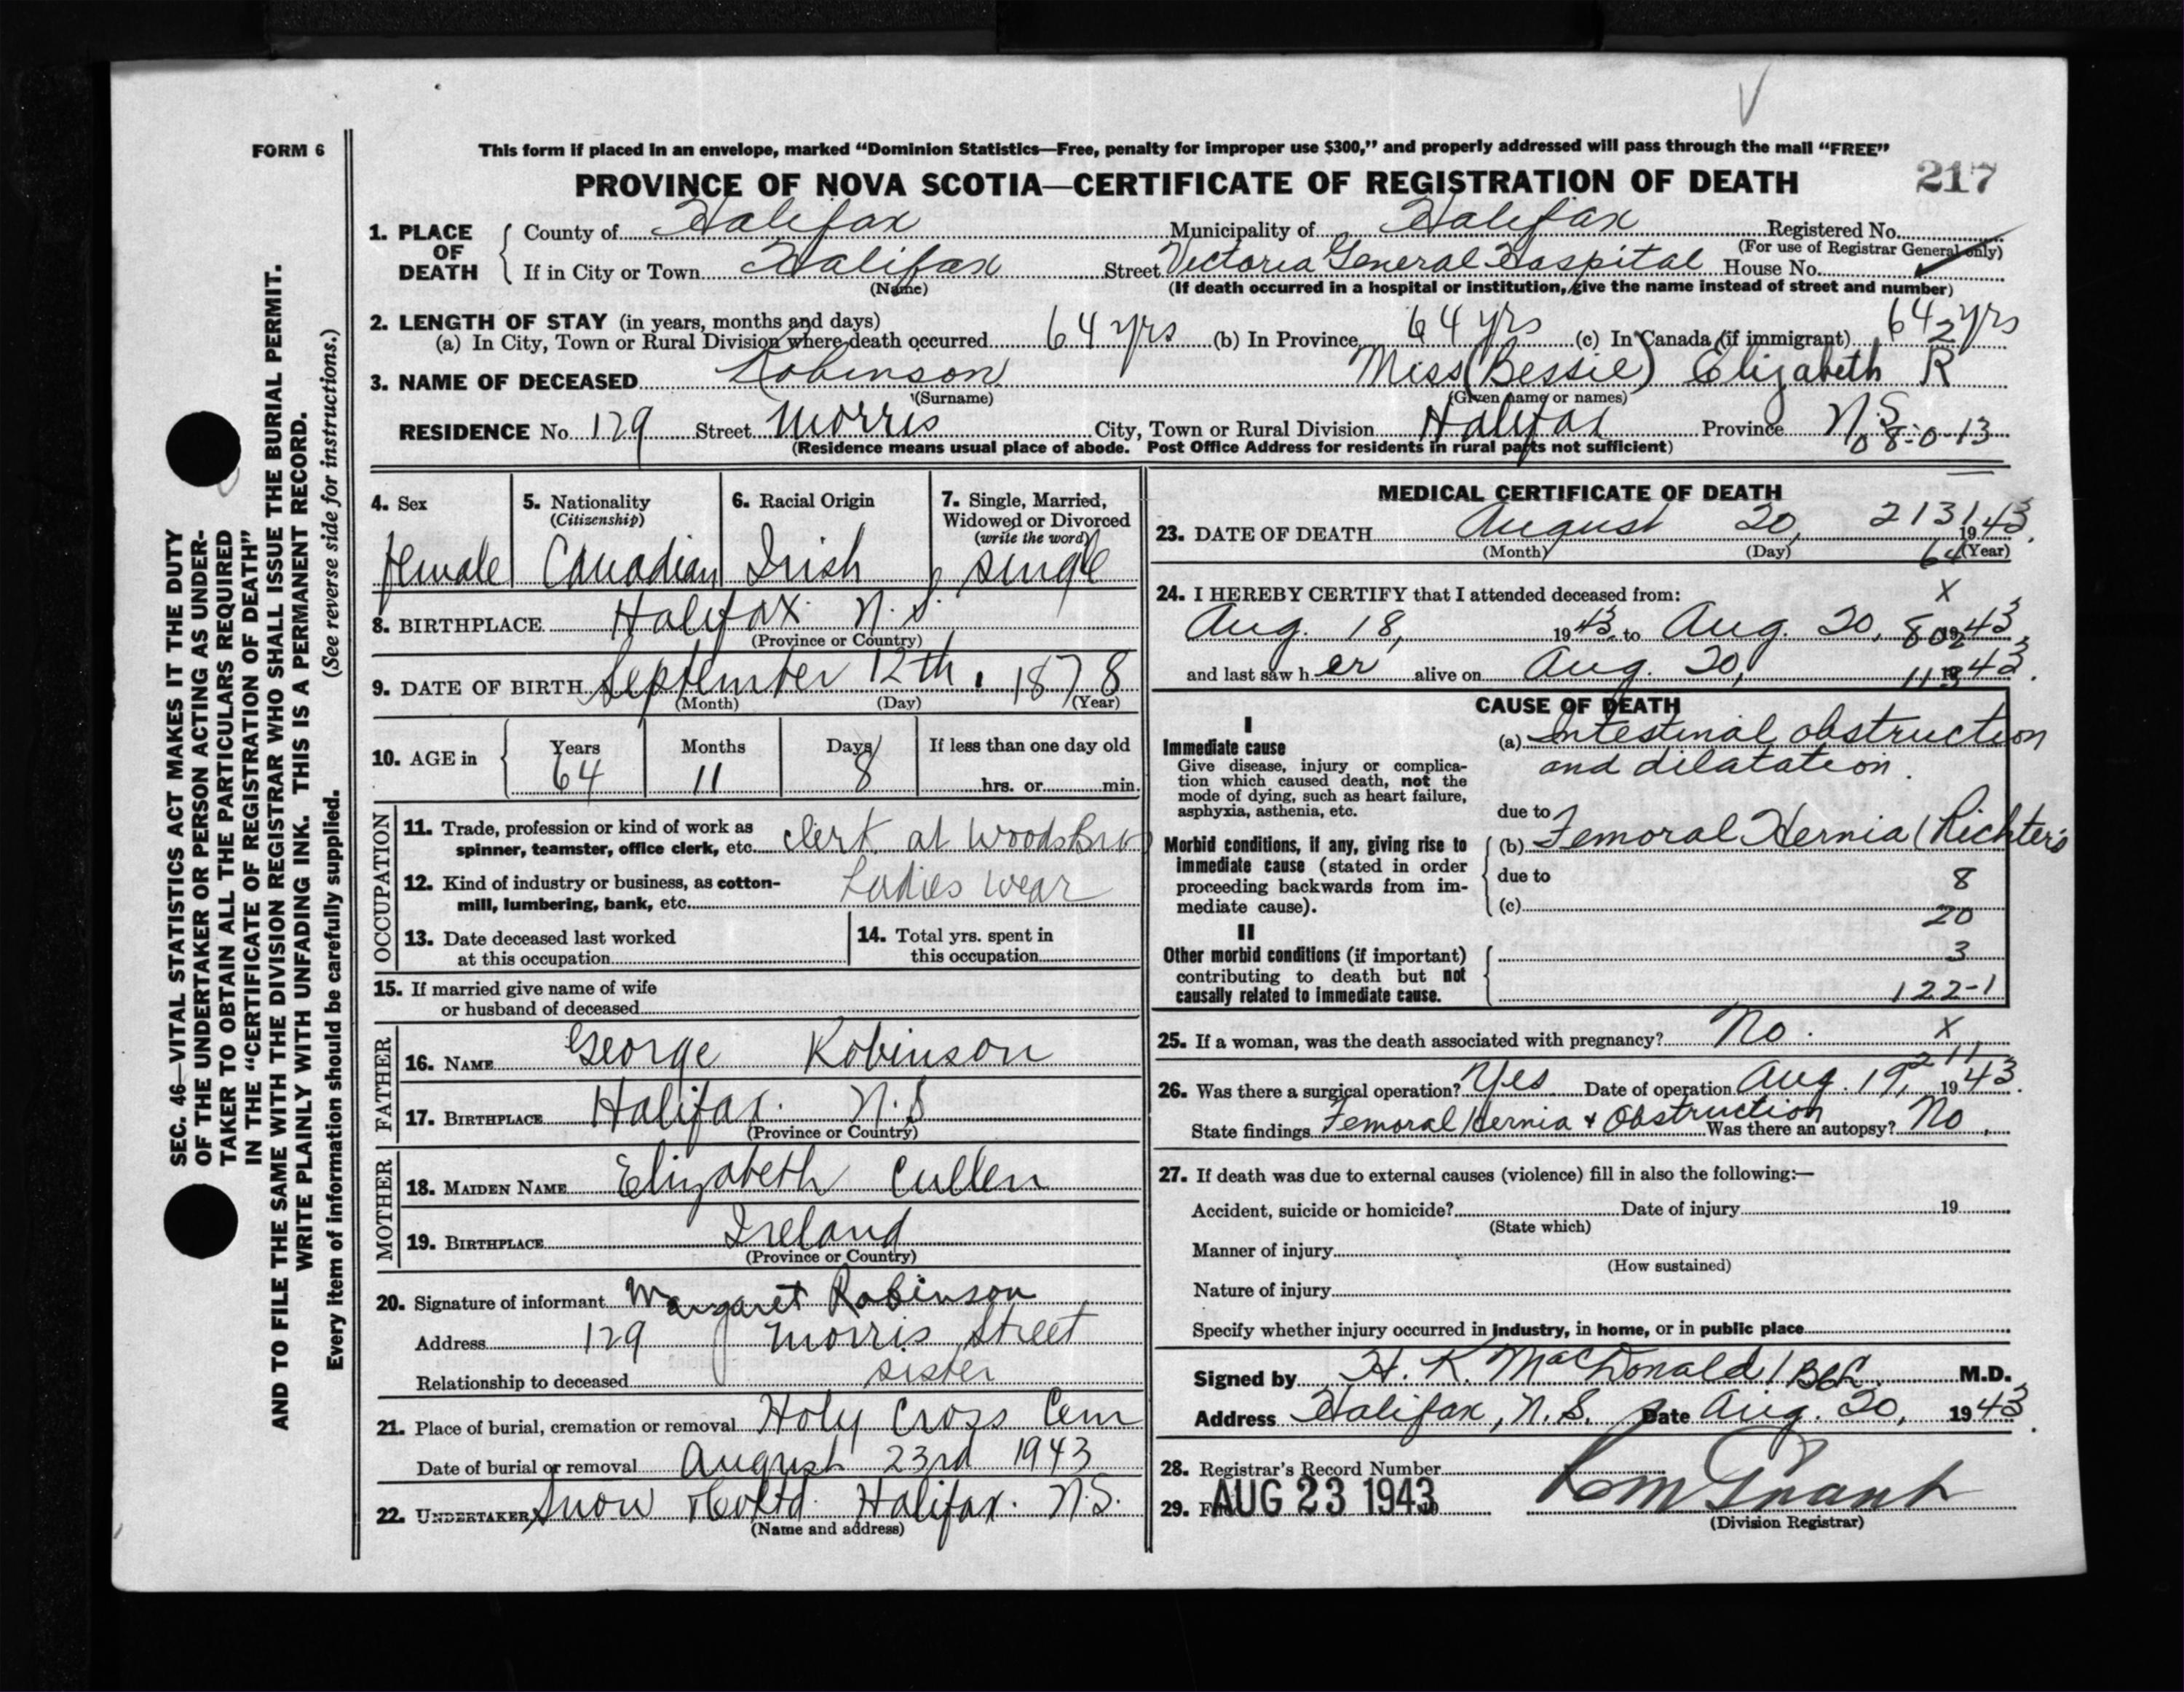 FORM 6
This form if placed in an envelope, marked “Dominion Statistics—Free, penalty for improper use $300,” and properly addressed will pass through the mail “FREE”
PROVINCE OF NOVA SCOTIA—CERTIFICATE OF REGISTRATION OF DEATH
217
1. PLACE OF DEATH
County of Halifax Municipality of Halifax Registered No.
(For use of Registrar General only)
If in City or Town Halifax Street Victoria General Hospital House No.
(Name) (If death occurred in a hospital or institution, give the name instead of street and number)
2. LENGTH OF STAY (in years, months and days)
(a) In City, Town or Rural Division where death occurred 64 yrs (b) In Province 64 yrs (c) In Canada (if immigrant) 64 yrs
2
3. NAME OF DECEASED Robinson Miss (Bessie) Elizabeth R
(Surname) (Given name or names)
RESIDENCE No. 129 Street Morris City, Town or Rural Division Halifax Province N.S.
08-0-13
(Residence means usual place of abode. Post Office Address for residents in rural parts not sufficient)
4. Sex
female
5. Nationality
(Citizenship)
Canadian
6. Racial Origin
Irish
7. Single, Married,
Widowed or Divorced
(write the word)
single
8. BIRTHPLACE Halifax N.S.
(Province or Country)
9. DATE OF BIRTH September 12th, 1878
(Month) (Day) (Year)
10. AGE in Years Months Days If less than one day old
64 11 8 hrs. or min.
OCCUPATION
11. Trade, profession or kind of work as
spinner, teamster, office clerk, etc. clerk at
12. Kind of industry or business, as cotton-
mill, lumbering, bank, etc. Ladies Wear
13. Date deceased last worked
at this occupation
14. Total yrs. spent in
this occupation
15. If married give name of wife
or husband of deceased
FATHER
16. NAME George Robinson
17. BIRTHPLACE Halifax. N.S
(Province or Country)
MOTHER
18. MAIDEN NAME Elizabeth Cullen
19. BIRTHPLACE Ireland
(Province or Country)
20. Signature of informant Margaret Robinson
Address 129 Morris Street
Relationship to deceased sister
21. Place of burial, cremation or removal Holy Cross Cem
Date of burial or removal August 23rd 1943
22. UNDERTAKER Snow & Co Ltd. Halifax. N.S.
(Name and address)
MEDICAL CERTIFICATE OF DEATH
2131
23. DATE OF DEATH August 20, 1943.
(Month) (Day) (Year)
64
24. I HEREBY CERTIFY that I attended deceased from:
X
Aug. 18, 1943 to Aug. 20, 1943
802
and last saw her alive on Aug. 20, 1943.
CAUSE OF DEATH
I
Immediate cause
Give disease, injury or complica-
tion which caused death, not the
mode of dying, such as heart failure,
asphyxia, asthenia, etc.
(a) Intestinal obstruction
and dilatation.
due to
Morbid conditions, if any, giving rise to
immediate cause (stated in order
proceeding backwards from im-
mediate cause).
(b) Femoral Hernia (Richter's
due to
8
(c)
20
II
Other morbid conditions (if important)
contributing to death but not
causally related to immediate cause.
3
122-1
25. If a woman, was the death associated with pregnancy? No.
X
211
26. Was there a surgical operation? Yes Date of operation Aug. 19, 1943.
State findings Femoral Hernia & Obstruction Was there an autopsy? No.
27. If death was due to external causes (violence) fill in also the following:—
Accident, suicide or homicide? Date of injury 19
(State which)
Manner of injury
(How sustained)
Nature of injury
Specify whether injury occurred in industry, in home, or in public place
Signed by H. K. MacDonald / M.D.
Address Halifax, N.S. Date Aug. 20, 1943.
28. Registrar's Record Number
29. AUG 23 1943
(Division Registrar)
SEC. 46—VITAL STATISTICS ACT MAKES IT THE DUTY
OF THE UNDERTAKER OR PERSON ACTING AS UNDER-
TAKER TO OBTAIN ALL THE PARTICULARS REQUIRED
IN THE “CERTIFICATE OF REGISTRATION OF DEATH”
AND TO FILE THE SAME WITH THE DIVISION REGISTRAR WHO SHALL ISSUE THE BURIAL PERMIT.
WRITE PLAINLY WITH UNFADING INK. THIS IS A PERMANENT RECORD.
Every item of information should be carefully supplied. (See reverse side for instructions.)